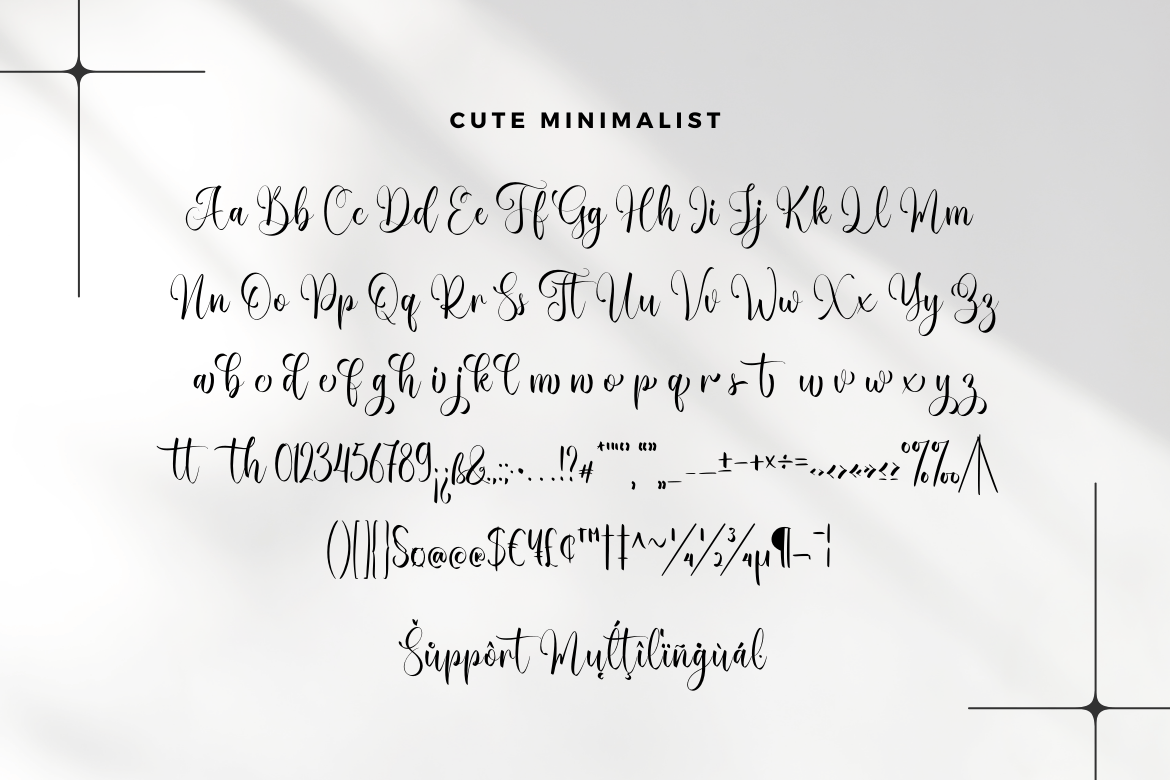 CUTE MINIMALIST
Aa Bb Cc Dd Ee Ff Gg Hh Ii Jj Kk Ll Mm
Nn Oo Pp Qq Rr Ss Tt Uu Vv Ww Xx Yy Zz
a b c d e f g h i j k l m n o p q r s t u v w x y z
tt th 0123456789¡¿ß&.,:;·...!?#
()[]{}§¤@©®$€¥£¢™†‡^~¼½¾µ¶
Šůppôrt Mụĺťîlïñġùáŀ